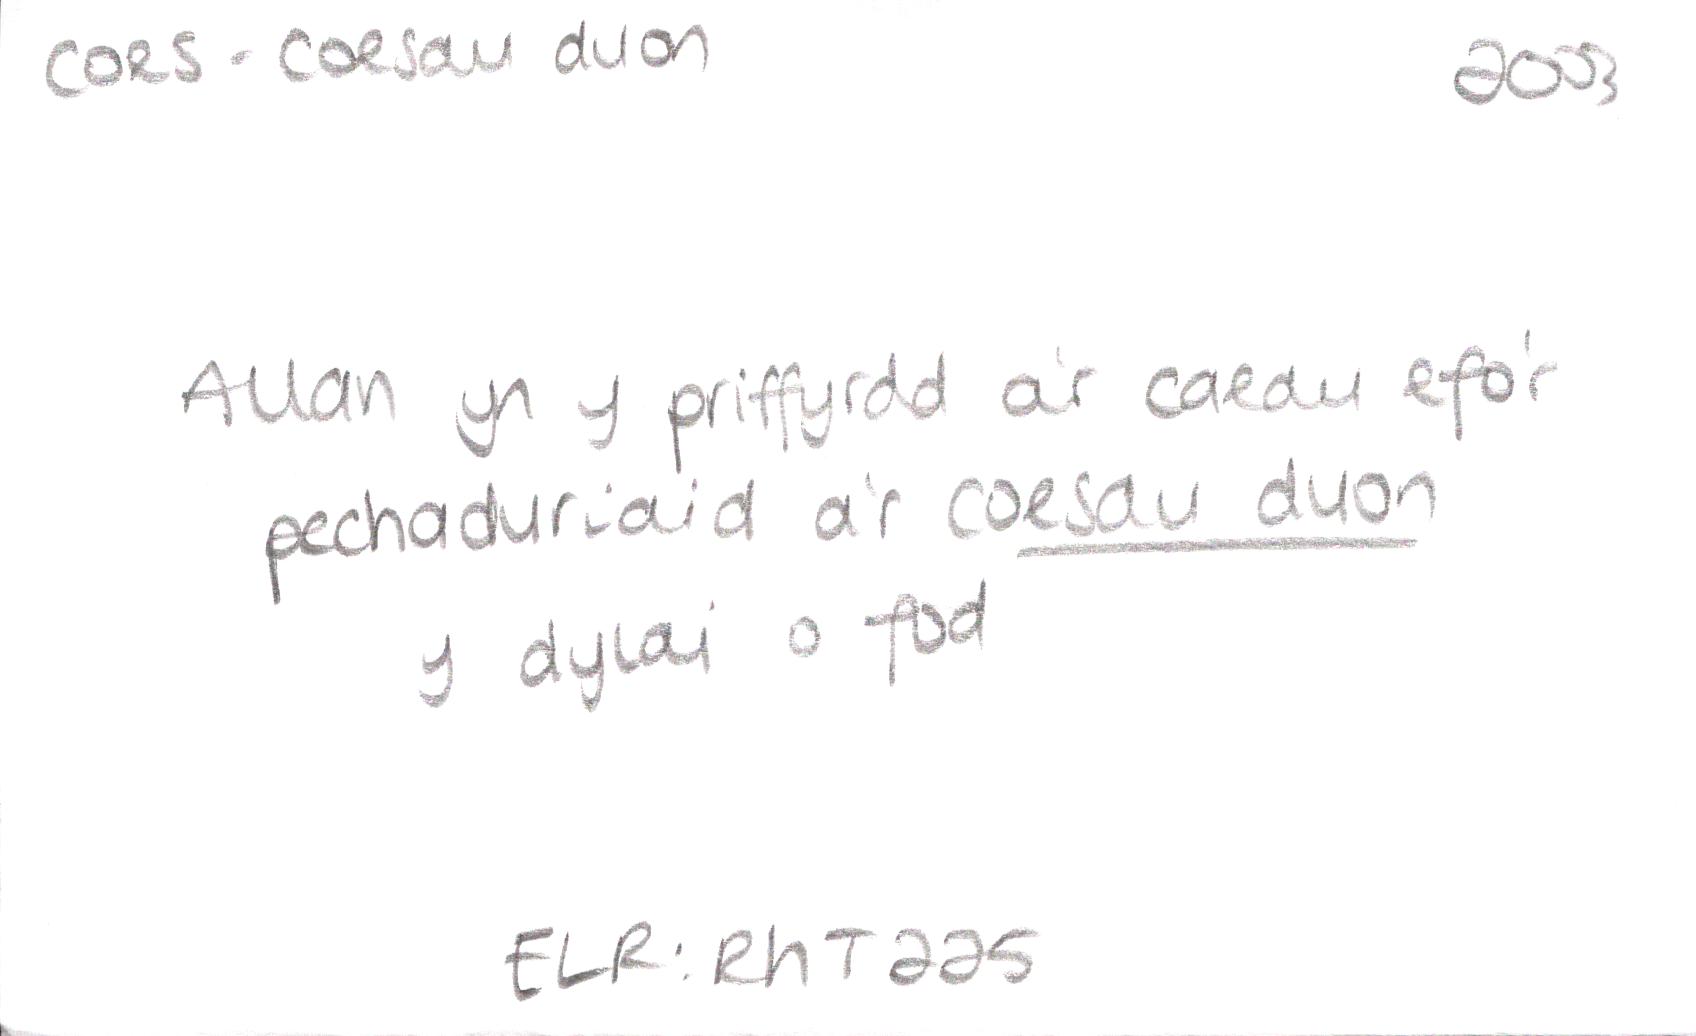 COES - Coesau duon 2003
Allan yn y priffyrdd a'r caeau efo'r
pechaduriaid a'r coesau duon
y dylai o fod
ELR: RhT 225